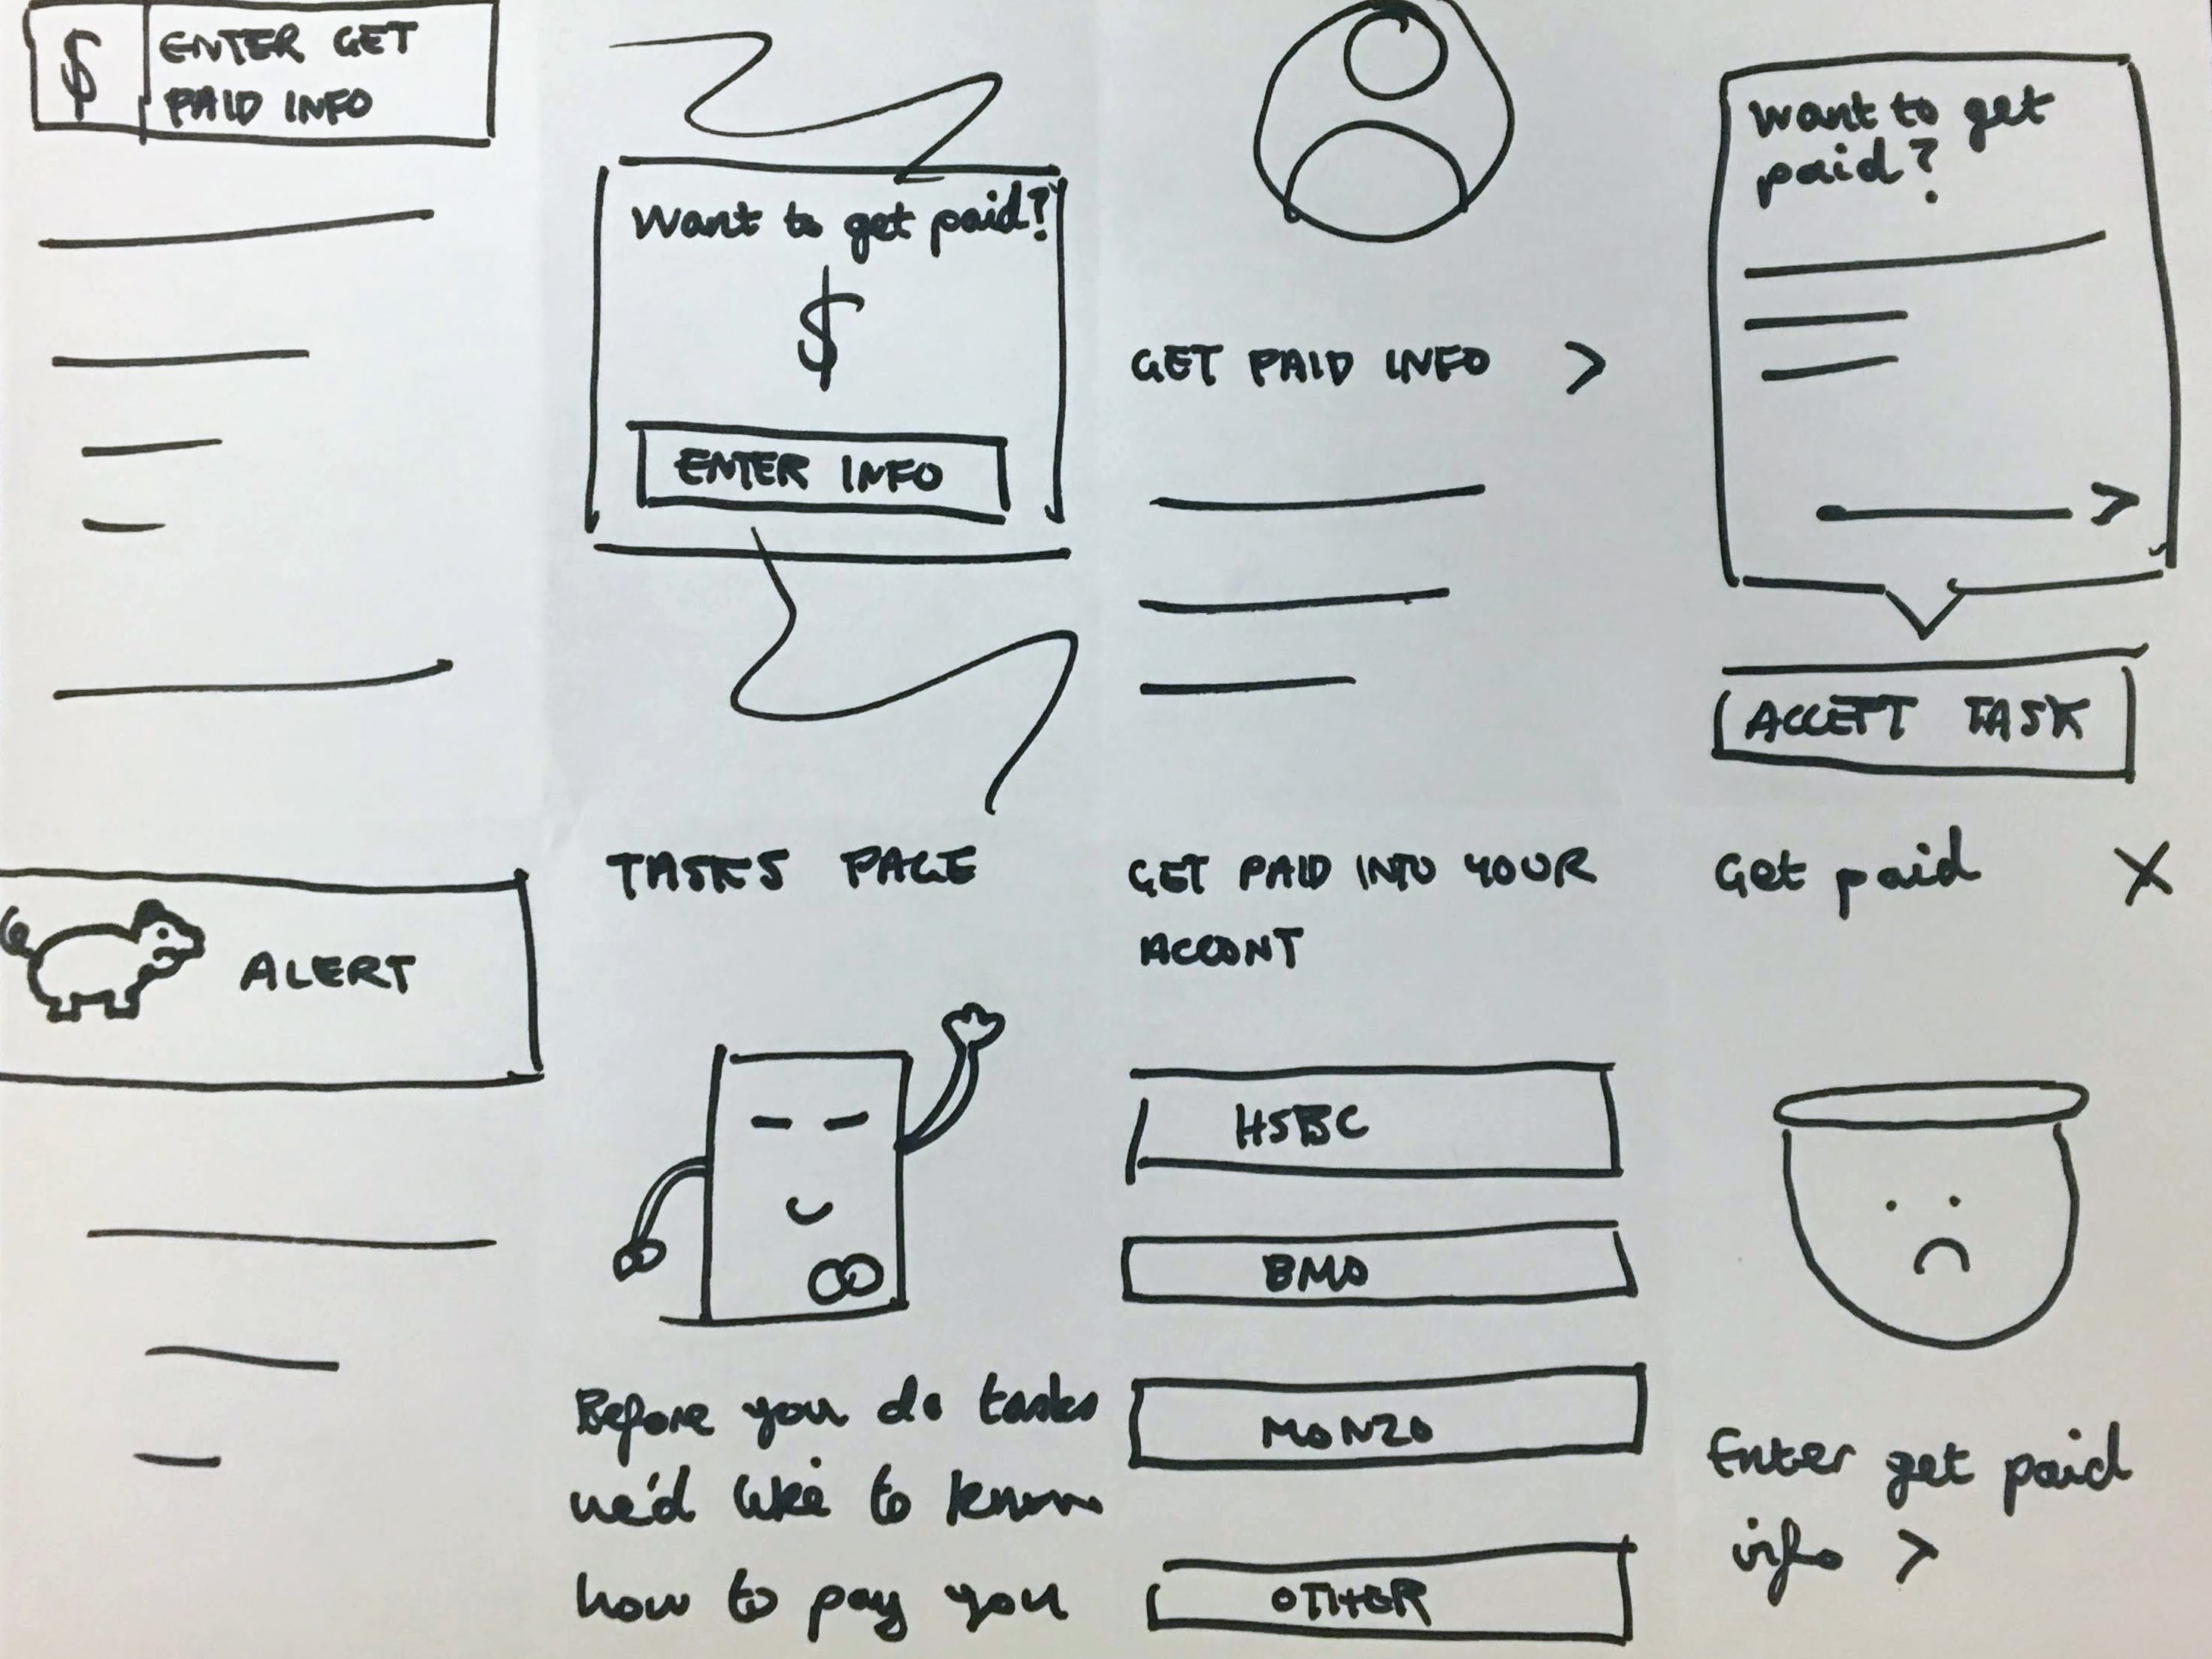 $
ENTER GET
PAID INFO
Want to get paid?
$
ENTER INFO
GET PAID INFO >
Want to get
paid?
>
ACCEPT TASK
ALERT
TASKS PAGE
Before you do tasks
we'd like to know
how to pay you
GET PAID INTO YOUR
ACCONT
HSBC
BMO
MONZO
OTHER
Get paid X
Enter get paid
info >